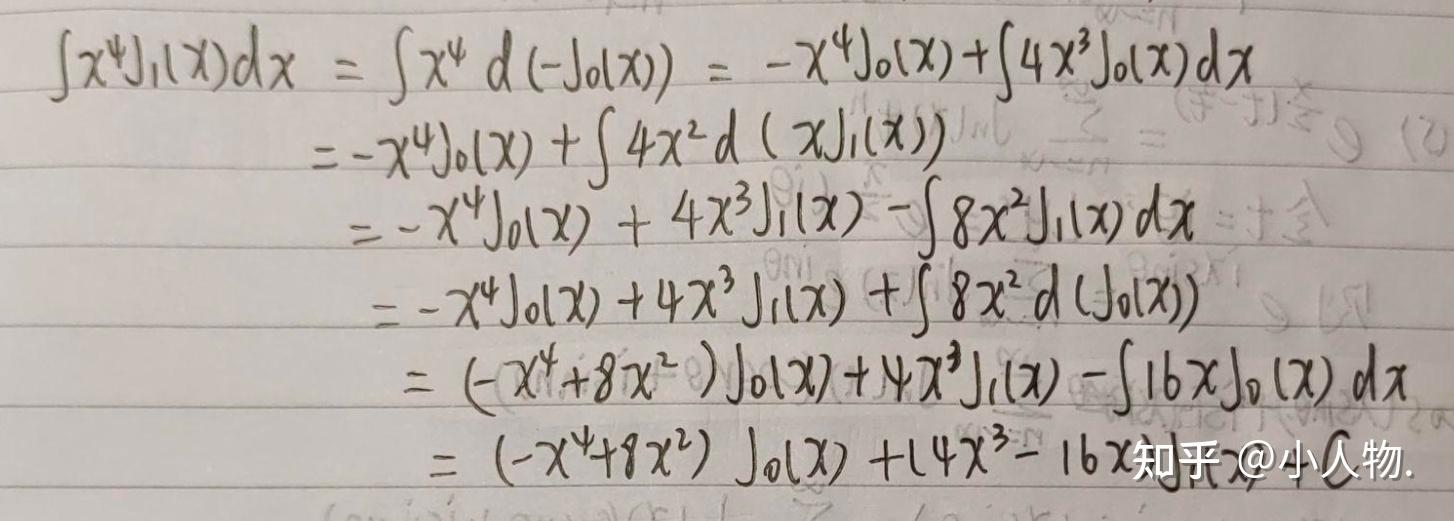 ∫x⁴J₁(x)dx = ∫x⁴ d(-J₀(x)) = -x⁴J₀(x) + ∫4x³J₀(x)dx
= -x⁴J₀(x) + ∫4x² d(xJ₁(x))
= -x⁴J₀(x) + 4x³J₁(x) - ∫8x²J₁(x)dx
= -x⁴J₀(x) + 4x³J₁(x) + ∫8x² d(J₀(x))
= (-x⁴+8x²)J₀(x) + 4x³J₁(x) - ∫16xJ₀(x)dx
= (-x⁴+8x²) J₀(x) + (4x³ - 16x)J₁(x) + C
知乎 @小人物.